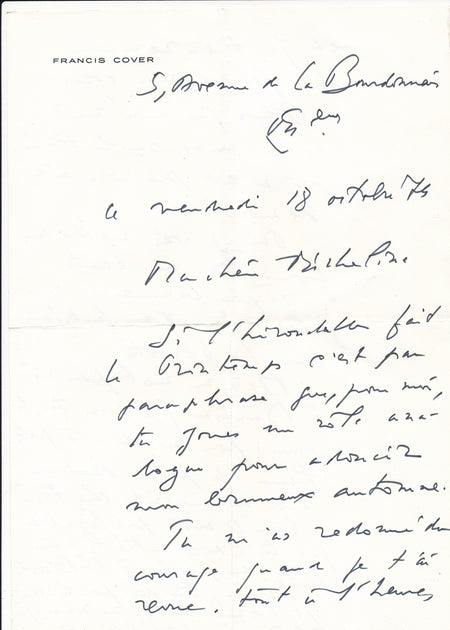 FRANCIS COVER
5, Avenue de La Bourdonnais
le vendredi 18 octobre 74
Ma chère Micheline
Si l'hirondelle fait
le Printemps c'est par
paraphrase que, pour moi,
tu joues un rôle ana-
logue pour adoucir
mon brumeux automne.
Tu m'as redonné du
courage quand je t'ai
revue, tout à l'heure